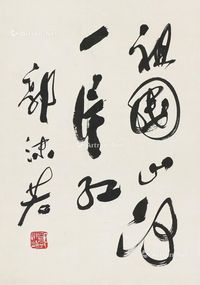 祖国山河
一片红
郭沫若